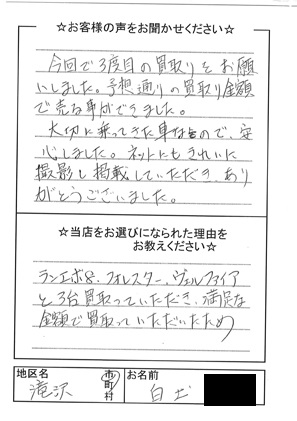 ☆お客様の声をお聞かせください☆
今回で3度目の買取りをお願
いしました。予想通りの買取り金額
で売る事ができました。
大切に乗ってきた車なもので、安
心しました。ネットにもきれいに
撮影し掲載していただき、あり
がとうございました。
☆当店をお選びになられた理由を
お教えください☆
ランエボ8、フォレスター、ヴェルファイア
と3台買取っていただき、満足な
金額で買取っていただいたため
地区名 お名前
滝沢 市町村 白土